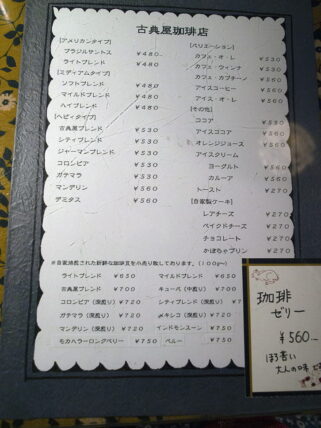 古典屋珈琲店
[アメリカンタイプ]
ブラジルサントス ￥480
ライトブレンド ￥480
[ミディアムタイプ]
ソフトブレンド ￥480
マイルドブレンド ￥480
ハイブレンド ￥480
[ヘビィタイプ]
古典屋ブレンド ￥530
シティブレンド ￥530
ジャーマンブレンド ￥530
コロンビア ￥530
ガテマラ ￥530
マンデリン ￥560
デミタス ￥560
[バリエーション]
カフェ・オ・レ ￥530
カフェ・ウィンナ ￥530
カフェ・カプチーノ ￥560
アイスコーヒー ￥560
アイス・オ・レ ￥560
[その他]
ココア ￥530
アイスココア ￥560
オレンジジュース ￥530
アイスクリーム
ヨーグルト ￥560
カルーア ￥560
トースト ￥270
[自家製ケーキ]
レアチーズ ￥270
ベイクドチーズ ￥270
チョコレート ￥270
かぼちゃプリン ￥270
※自家焙煎された新鮮な珈琲豆を小売り致しております。(100g〜)
ライトブレンド ￥650 マイルドブレンド ￥650
古典屋ブレンド ￥700 キューバ（中煎り） ￥700
コロンビア（深煎り） ￥720 シティブレンド（深煎り）
ガテマラ（深煎り） ￥720 メキシコ（深煎り） ￥720
マンデリン（深煎り） ￥720 インドモンスーン ￥750
モカハラーロングベリー ￥750 ペルー ￥750
珈琲
ゼリー
￥560
ほろ苦い
大人の味